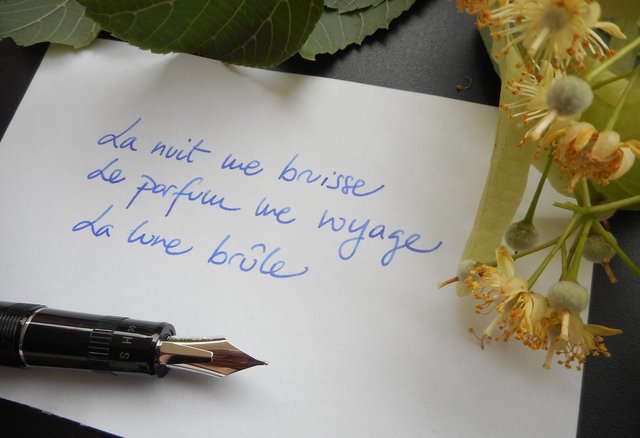 La nuit me bruisse
Le parfum me voyage
La lune brûle
H S